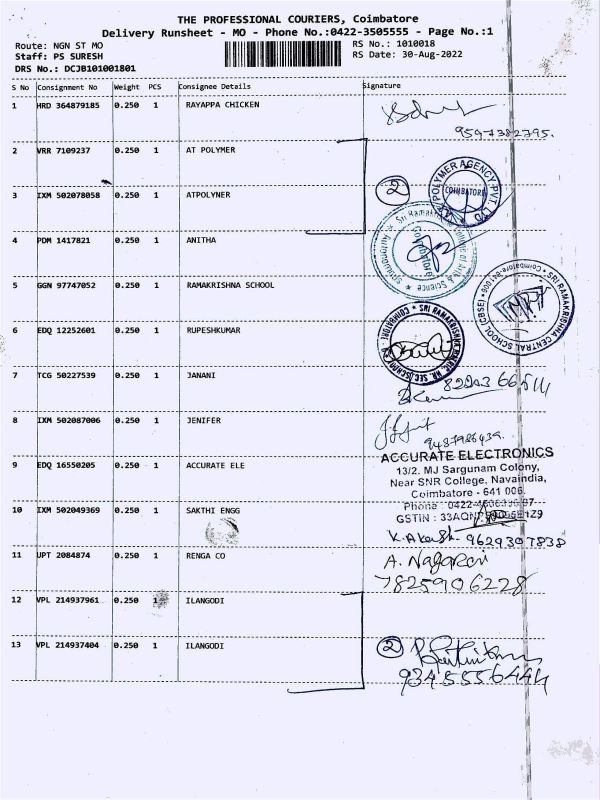 THE PROFESSIONAL COURIERS, Coimbatore
Delivery Runsheet - MO - Phone No.:0422-3505555 - Page No.:1
Route: NGN ST MO RS No.: 1010018
Staff: P5 SURESH RS Date: 30-Aug-2022
DRS No.: DCJB101001801
S No Consignment No Weight PCS Consignee Details Signature
1 HRD 364879185 0.250 1 RAYAPPA CHICKEN
9597382795.
2 VRR 7109237 0.250 1 AT POLYMER
POLYMER AGENCY PVT. LTD
COIMBATORE
3 IXM 502078058 0.250 1 ATPOLYNER
2
4 PDM 1417821 0.250 1 ANITHA
Sri Ramakrishna College of Arts & Science
Autonomous
Coimbatore
5 GGN 97747052 0.250 1 RAMAKRISHNA SCHOOL
SRI RAMAKRISHNA CENTRAL SCHOOL (CBSE)
6 EDQ 12252601 0.250 1 RUPESHKUMAR
7 TCG 50227539 0.250 1 JANANI
8 IXM 502087006 0.250 1 JENIFER
9487986939.
9 EDQ 16550205 0.250 1 ACCURATE ELE
ACCURATE ELECTRONICS
13/2. MJ Sargunam Colony,
Near SNR College, Navaindia,
Coimbatore - 641 006.
Phone : 0422-
GSTIN : 33AQN
10 IXM 502049369 0.250 1 SAKTHI ENGG
K. Akash. 9629307838
11 UPT 2084874 0.250 1 RENGA CO
A. Nagaraj
7825906228
12 VPL 214937961 0.250 1 ILANGODI
13 VPL 214937404 0.250 1 ILANGODI
2
9345556444